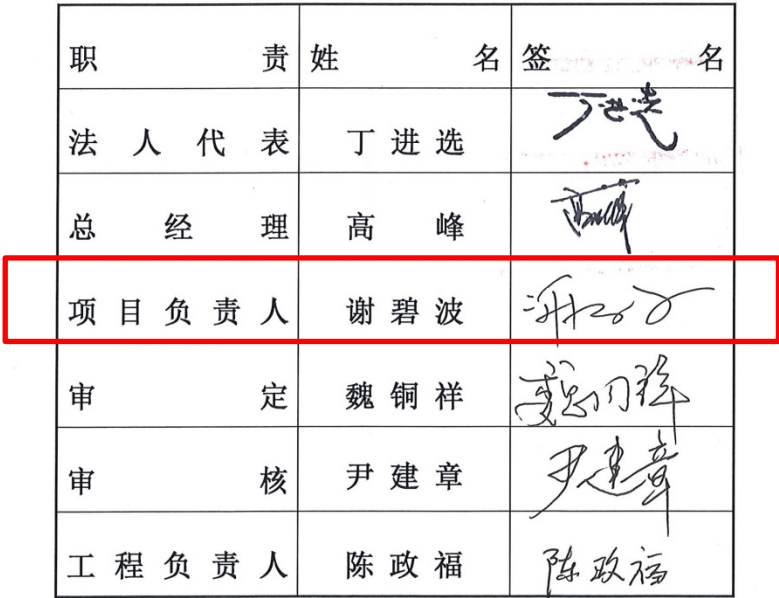 职责 姓名 签名
法人代表 丁进选 丁进选
总经理 高峰 高峰
项目负责人 谢碧波
审定 魏铜祥 魏铜祥
审核 尹建章 尹建章
工程负责人 陈政福 陈政福